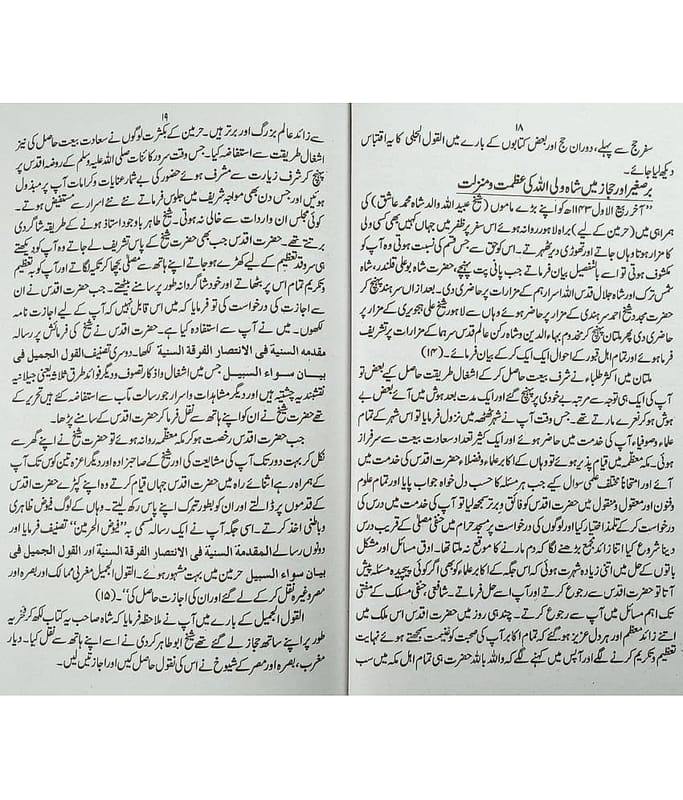 ۱۸
سفر حج سے پہلے، دوران حج اور بعض کتابوں کے بارے میں القول الجلی کا یہ اقتباس
دیکھ لیا جائے۔
برصغیر اور حجاز میں شاہ ولی اللہ کی عظمت و منزلت
”آخر ربیع الاول ۱۱۴۳ھ کو اپنے بڑے ماموں (شیخ عبید اللہ والد شاہ محمد عاشق) کی
ہمراہی میں (حرمین کے لیے) براہ لاہور روانہ ہوئے اس سفر پر ظفر میں جہاں کہیں بھی کسی ولی
کا مزار ہوتا وہاں جاتے اور تھوڑی دیر ٹھہرتے۔ اس کو حق سے جس قسم کی نسبت ہوتی وہ آپ کو
مکشوف ہوتی تو اسے بالتفصیل بیان فرماتے جب پانی پت پہنچے، حضرت شاہ بوعلی قلندر، شاہ
شمس ترک اور شاہ جلال قدس اللہ اسرارہم کے مزارات پر حاضری دی۔ بعد ازاں سرہند پہنچ کر
حضرت مجدد شیخ احمد سرہندی کے مزار پر حاضر ہوئے وہاں سے لاہور شیخ علی ہجویری کے مزار پر
حاضری دی پھر ملتان پہنچ کر مخدوم بہاء الدین و شاہ رکن عالم قدس سرہما کے مزارات پر تشریف
فرما ہوئے اور تمام اہل قبور کے احوال ایک ایک کر کے بیان فرمائے۔ (۱۴)
ملتان میں اکثر طلباء نے شرف بیعت حاصل کر کے اشغال طریقت حاصل کیے بعض تو
آپ کی ایک ہی توجہ سے مرتبہ بے خودی پر پہنچ گئے اور ایک مدت بعد ہوش میں آئے بعض بے
ہوش ہو کر نعرے مارتے تھے۔ جس وقت آپ نے شہر ٹھٹھہ میں نزول فرمایا تو اس شہر کے تمام
علماء و صوفیاء آپ کی خدمت میں حاضر ہوئے اور ایک کثیر تعداد سعادت بیعت سے سرفراز
ہوئی۔ مکہ معظمہ میں قیام پذیر ہوئے تو وہاں کے اکابر علماء و فضلاء حضرت اقدس کی خدمت میں
آئے اور امتحاناً مختلف علمی سوال کیے جب ہر مسئلہ کا حسب دل خواہ جواب پایا اور تمام علوم
و فنون اور معقول و منقول میں حضرت اقدس کو فائق و برتر سمجھ لیا تو آپ کی خدمت میں درس کی
درخواست کر کے تلمذ اختیار کیا اور لوگوں کی درخواست پر مسجد حرام میں حنفی مصلی کے قریب درس
دینا شروع کیا اتنا زائد مجمع بڑھنے لگا کہ دم مارنے کا موقع نہ ملتا تھا۔ اوق مسائل اور مشکل
باتوں کے حل میں اتنی زیادہ شہرت ہوئی کہ اس جگہ کے اکابر علماء کو بھی اگر کوئی پیچیدہ مسئلہ پیش
آتا تو حضرت اقدس سے رجوع کرتے اور آپ اسے حل فرماتے۔ شافعی حنفی مسلک کے مفتی
تک اہم مسائل میں آپ سے رجوع کرتے۔ چند ہی روز میں حضرت اقدس اس ملک میں
اتنے زائد معظم اور ہر دل عزیز ہو گئے کہ تمام اکابر آپ کی صحبت کو غنیمت سمجھتے ہوئے نہایت
تعظیم و تکریم کرنے لگے اور آپس میں کہنے لگے کہ واللہ باللہ حضرت ہی تمام اہل مکہ میں سب
۱۹
سے زائد عالم بزرگ اور برتر ہیں۔ حرمین کے بکثرت لوگوں نے سعادت بیعت حاصل کی نیز
اشغال طریقت سے استفاضہ کیا۔ جس وقت سرور کائنات صلی اللہ علیہ وسلم کے روضہ اقدس پر
پہنچ کر شرف زیارت سے مشرف ہوئے حضور کی بے شمار عنایات و کرامات آپ پر مبذول
ہوئیں اور جس دن بھی مواجہہ شریف میں جلوس فرماتے نئے نئے اسرار سے مستفیض ہوتے۔
کوئی مجلس ان واردات سے خالی نہ ہوتی۔ شیخ طاہر باوجود استاذ ہونے کے طریقہ شاگردی
برتتے تھے۔ حضرت اقدس جب بھی حضرت شیخ کے پاس تشریف لے جاتے وہ آپ کو دیکھتے
ہی سروقد تعظیم کے لیے کھڑے ہو جاتے اپنے ہاتھ سے مصلی بچھا کر تکیہ لگاتے اور آپ کو بہ تعظیم
و تکریم تمام اس پر بٹھاتے اور خود شاگردانہ طور پر سامنے بیٹھتے۔ جب حضرت اقدس نے ان
سے اجازت کی درخواست کی تو فرمایا کہ میں اس قابل نہیں کہ آپ کے لیے اجازت نامہ
لکھوں۔ میں نے آپ سے استفادہ کیا ہے۔ حضرت اقدس نے شیخ کی فرمائش پر رسالہ
مقدمہ السنیة فی الانتصار الفرقة السنية لکھا۔ دوسری تصنیف القول الجميل فی
بیان سواء السبيل جس میں اشغال و اذکار تصوف و دیگر فوائد طرق ثلاثہ یعنی جیلانیہ
نقشبندیہ چشتیہ ہیں اور دیگر مشاہدات و اسرار جو رسالت مآب سے حاصل کئے تھے تحریر کے
تھے حضرت شیخ نے ان کو اپنے ہاتھ سے نقل فرما کر حضرت اقدس کے سامنے پڑھا۔
جب حضرت اقدس رخصت ہو کر مکہ معظمہ روانہ ہوئے تو حضرت شیخ نے اپنے گھر سے
نکل کر بہت دور تک آپ کی مشایعت کی اور شیخ کے صاحبزادہ اور دیگر اعزہ تین کوس تک آپ
کے ہمراہ رہے اثنائے راہ میں حضرت اقدس جہاں کہیں قیام کرتے وہ اپنے کپڑے حضرت
کے قدموں پر ڈالتے اور ان کو بطور تبرک اپنے پاس رکھ لیتے۔ وہاں کے لوگ فیوض ظاہری
و باطنی اخذ کرتے۔ اسی جگہ آپ نے ایک رسالہ مسمی بہ ”فیوض الحرمین“ تصنیف فرمایا اور
دونوں رسالے المقدمة السنية فی الانتصار الفرقة السنية اور القول الجميل فی
بیان سواء السبيل حرمین میں بہت مشہور ہوئے۔ القول الجمیل مغربی ممالک اور بصرہ اور
مصر وغیرہ نقل کر کے لے گئے اور ان کی اجازت حاصل کی۔“ (۱۵)
القول الجمیل کے بارے میں آپ نے ملاحظہ فرمایا کہ شاہ صاحب یہ کتاب لکھ کر فخریہ
طور پر اپنے ساتھ حجاز لے گئے تھے شیخ ابو طاہر کردی نے اسے اپنے ہاتھ سے نقل کیا۔ دیار
مغرب، بصرہ اور مصر کے شیوخ نے اس کی نقول حاصل کیں اور اجازتیں لیں۔